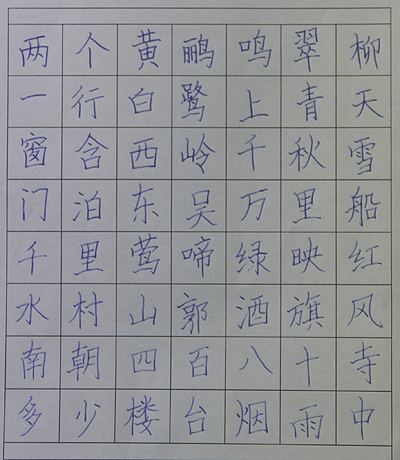 两个黄鹂鸣翠柳
一行白鹭上青天
窗含西岭千秋雪
门泊东吴万里船
千里莺啼绿映红
水村山郭酒旗风
南朝四百八十寺
多少楼台烟雨中